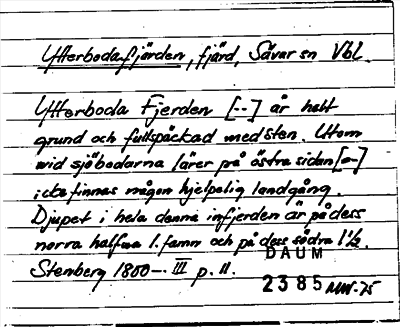 Ytterbodafjärden, fjärd, Sävar sn Vbl.
Ytterboda Fjerden [--] är helt
grund och fullspäckad med sten. Utom
wid sjöbodarna lärer på östra sidan [--]
icke finnas någon hjelpelig landgång.
Djupet i hela denna infjerden är på dess
norra halfwa 1. famn och på dess södra 1½.
Stenberg 1800-. III p. 11.
DAUM
2385 MW-75